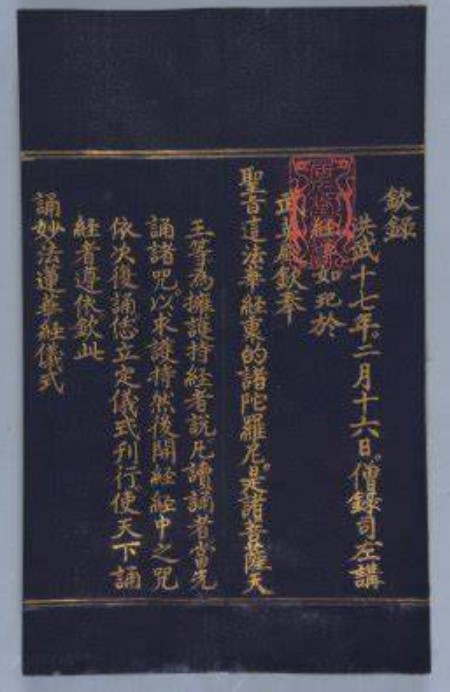 欽錄
洪武十七年。二月十六日。僧錄司左講
經 如玘於
武英殿欽奉
聖旨這法華經裏的諸陀羅尼。是諸菩薩天
王等為擁護持經者說凡讀誦者當先
誦諸咒。以求護持然後開經經中之咒
依次復誦恁立定儀式刊行使天下誦
經者遵依欽此
誦妙法蓮華經儀式